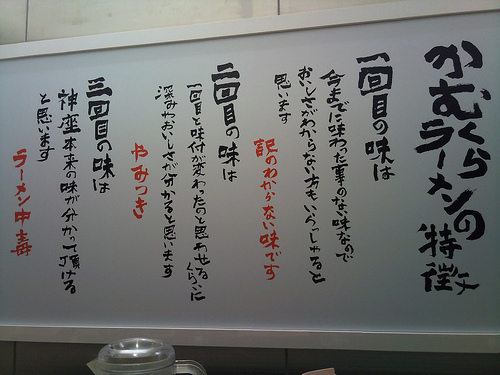 かむくら
ラーメンの
特徴
一回目の味は
今までに味わった事のない味なので
おいしさがわからない方もいらっしゃると
思います
訳のわからない味です
二回目の味は
一回目と味付が変わったのと思わせる
くらいに
深みやおいしさが分かると思います
やみつき
三回目の味は
神座本来の味が分かって頂ける
と思います
ラーメン中毒